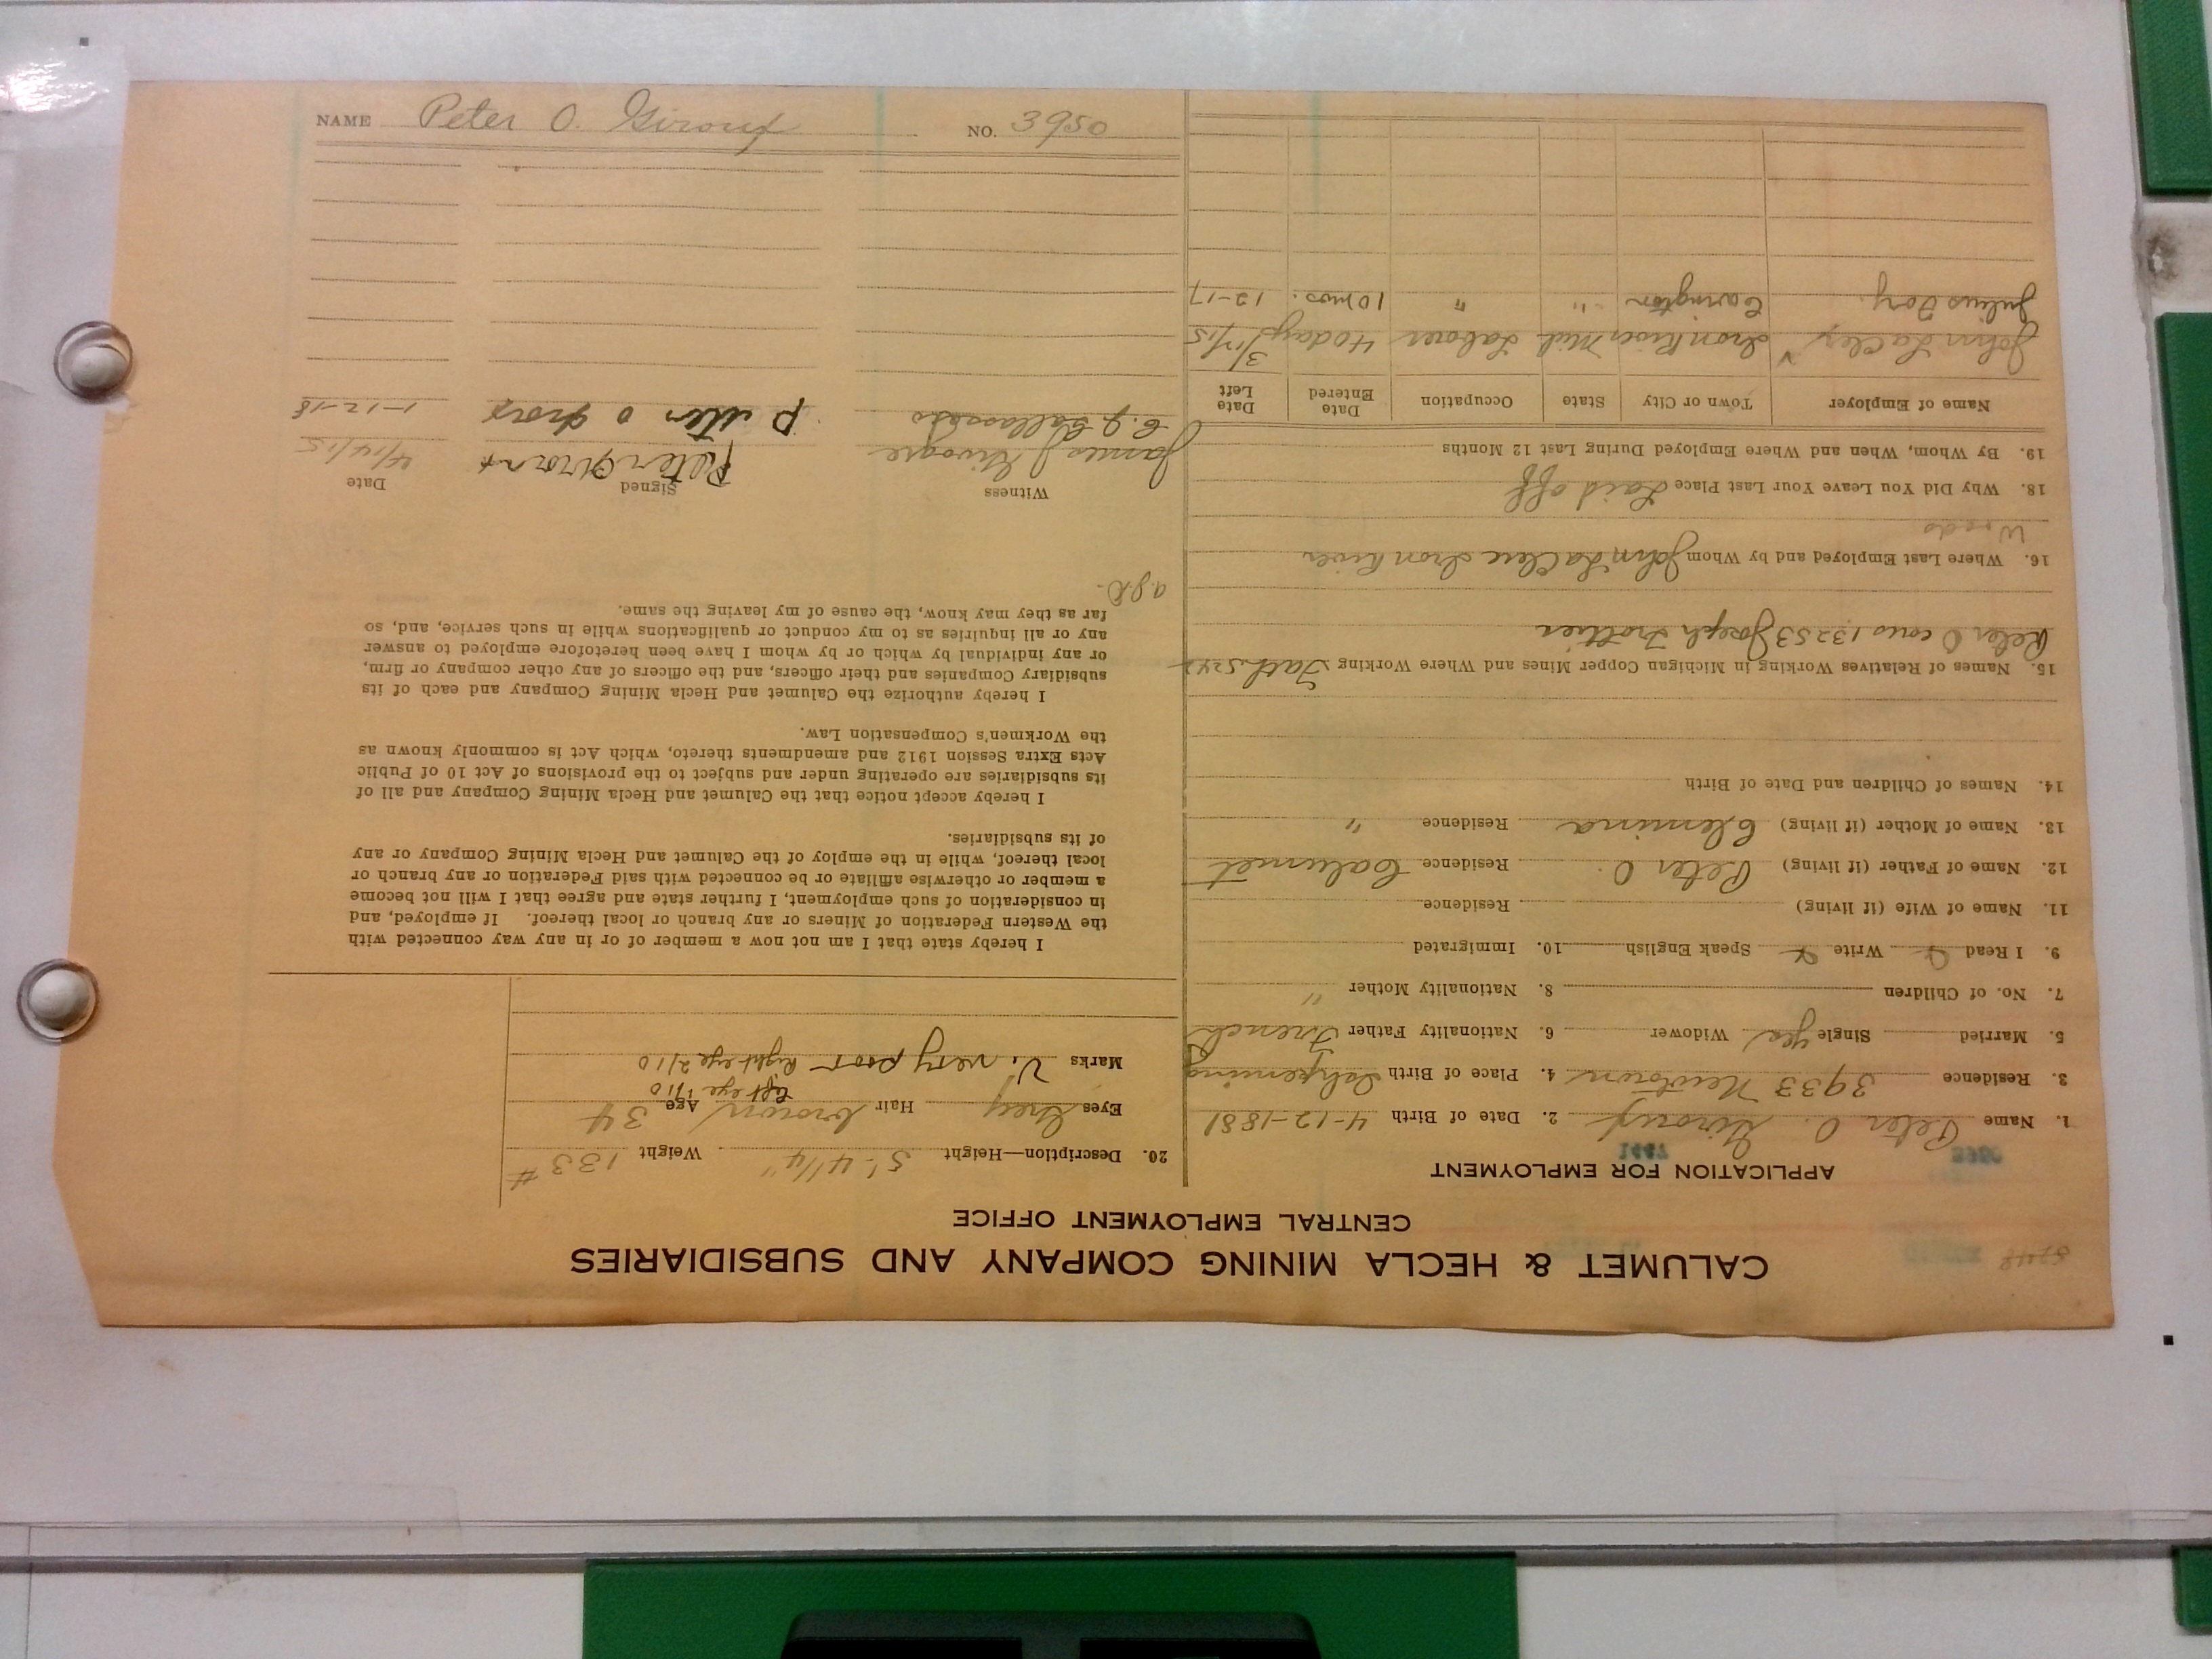 CALUMET & HECLA MINING COMPANY AND SUBSIDIARIES
CENTRAL EMPLOYMENT OFFICE
APPLICATION FOR EMPLOYMENT
3950
1447
1. Name Peter O. Giroux 2. Date of Birth 4-12-1881
3. Residence 3933 Newtown 4. Place of Birth Ishpeming
5. Married Single yes Widower 6. Nationality Father French
7. No. of Children 8. Nationality Mother "
9. I Read Write Speak English 10. Immigrated
11. Name of Wife (if living) Residence
12. Name of Father (if living) Peter O. Residence Calumet
13. Name of Mother (if living) Clemina Residence "
14. Names of Children and Date of Birth
15. Names of Relatives Working in Michigan Copper Mines and Where Working Fath.
Peter O cous 13253 Joseph Trottier
16. Where Last Employed and by Whom John LaClere Iron River
Woods
18. Why Did You Leave Your Last Place Laid off
19. By Whom, When and Where Employed During Last 12 Months
Name of Employer Town or City State Occupation Date Entered Date Left
John Iron River Mich Laborer 40 days 3/17/15
Julius " " 10 mos. 12-17
20. Description—Height 5'-4 1/4" Weight 133 #
Eyes Grey Hair brown Age 34
Left eye 1/10
Marks V. very poor Right eye 2/10
I hereby state that I am not now a member of or in any way connected with
the Western Federation of Miners or any branch or local thereof. If employed, and
in consideration of such employment, I further state and agree that I will not become
a member or otherwise affiliate or be connected with said Federation or any branch or
local thereof, while in the employ of the Calumet and Hecla Mining Company or any
of its subsidiaries.
I hereby accept notice that the Calumet and Hecla Mining Company and all of
its subsidiaries are operating under and subject to the provisions of Act 10 of Public
Acts Extra Session 1912 and amendments thereto, which Act is commonly known as
the Workmen's Compensation Law.
I hereby authorize the Calumet and Hecla Mining Company and each of its
subsidiary Companies and their officers, and the officers of any other company or firm,
or any individual by which or by whom I have been heretofore employed to answer
any or all inquiries as to my conduct or qualifications while in such service, and, so
far as they may know, the cause of my leaving the same.
Witness Signed Date
James J 4/14/15
C. J. Peter O 1-12-18
NAME Peter O. Giroux NO. 3950